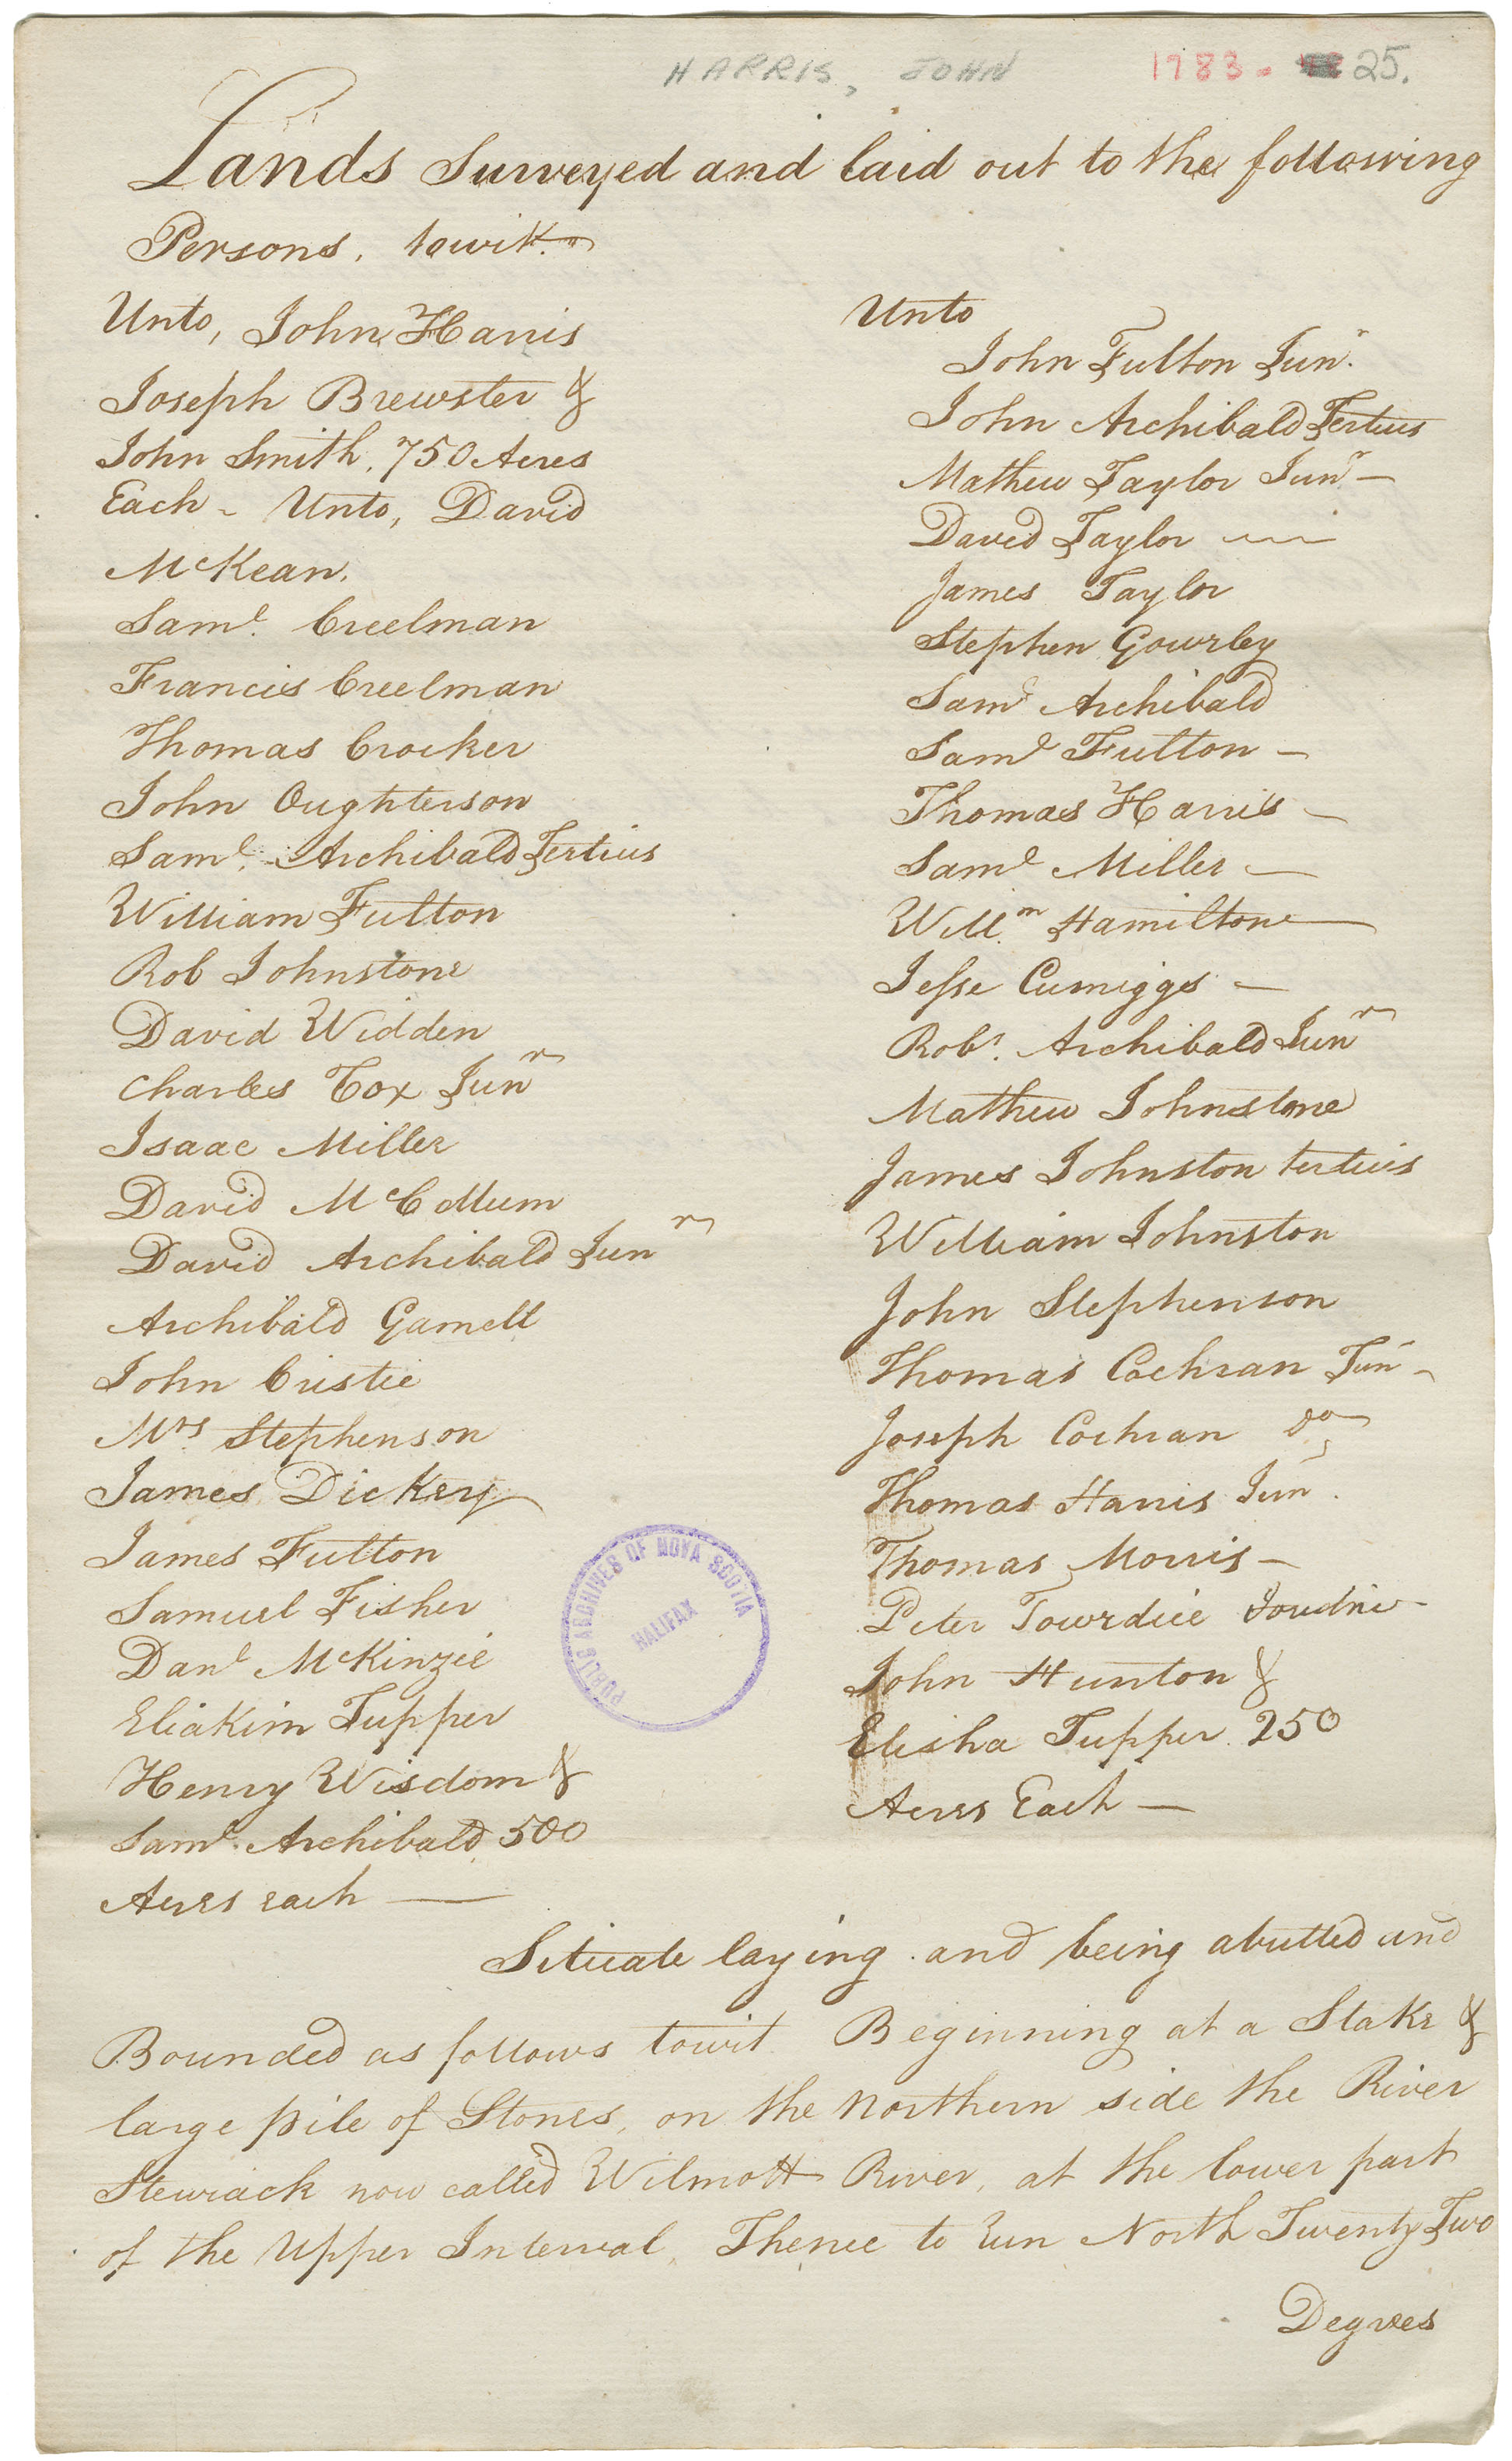 HARRIS, JOHN 1783 - 25.
Lands Surveyed and laid out to the following
Persons, towit.
Unto, John Harris
Joseph Brewster &
John Smith, 750 Acres
Each - Unto, David
McKean.
Saml. Creelman
Francis Creelman
Thomas Crocker
John Oughterson
Saml. Archibald Tertius
William Fulton
Rob Johnstone
David Widden
Charles Cox Junr
Isaac Miller
David McCollum
David Archibald Junr
Archibald Gamell
John Cristie
Mrs Stephenson
James Dickey
James Fulton
Samuel Fisher
Danl McKinzie
Eliakim Tupper
Henry Wisdom &
Saml. Archibald, 500
Acres each —
Unto
John Fulton Junr.
John Archibald Tertius
Mathew Taylor Junr —
David Taylor
James Taylor
Stephen Gourley
Saml Archibald
Saml Fulton —
Thomas Harris —
Saml Miller —
Willm. Hamilton
Jesse Cumiggs —
Robt. Archibald Junr
Mathew Johnstone
James Johnston tertius
William Johnston
John Stephenson
Thomas Cochran Jun —
Joseph Cochran do
Thomas Harris Jun.
Thomas Morris —
Peter Towrdice
John Hunton &
Elisha Tupper. 250
Acres Each —
PUBLIC ARCHIVES OF NOVA SCOTIA
HALIFAX
Situate laying and being abutted and
Bounded as follows towit Beginning at a Stake &
large pile of Stones, on the Northern side the River
Stewiack now called Wilmott River, at the lower part
of the Upper Interval, Thence to Run North Twenty Two
Degrees